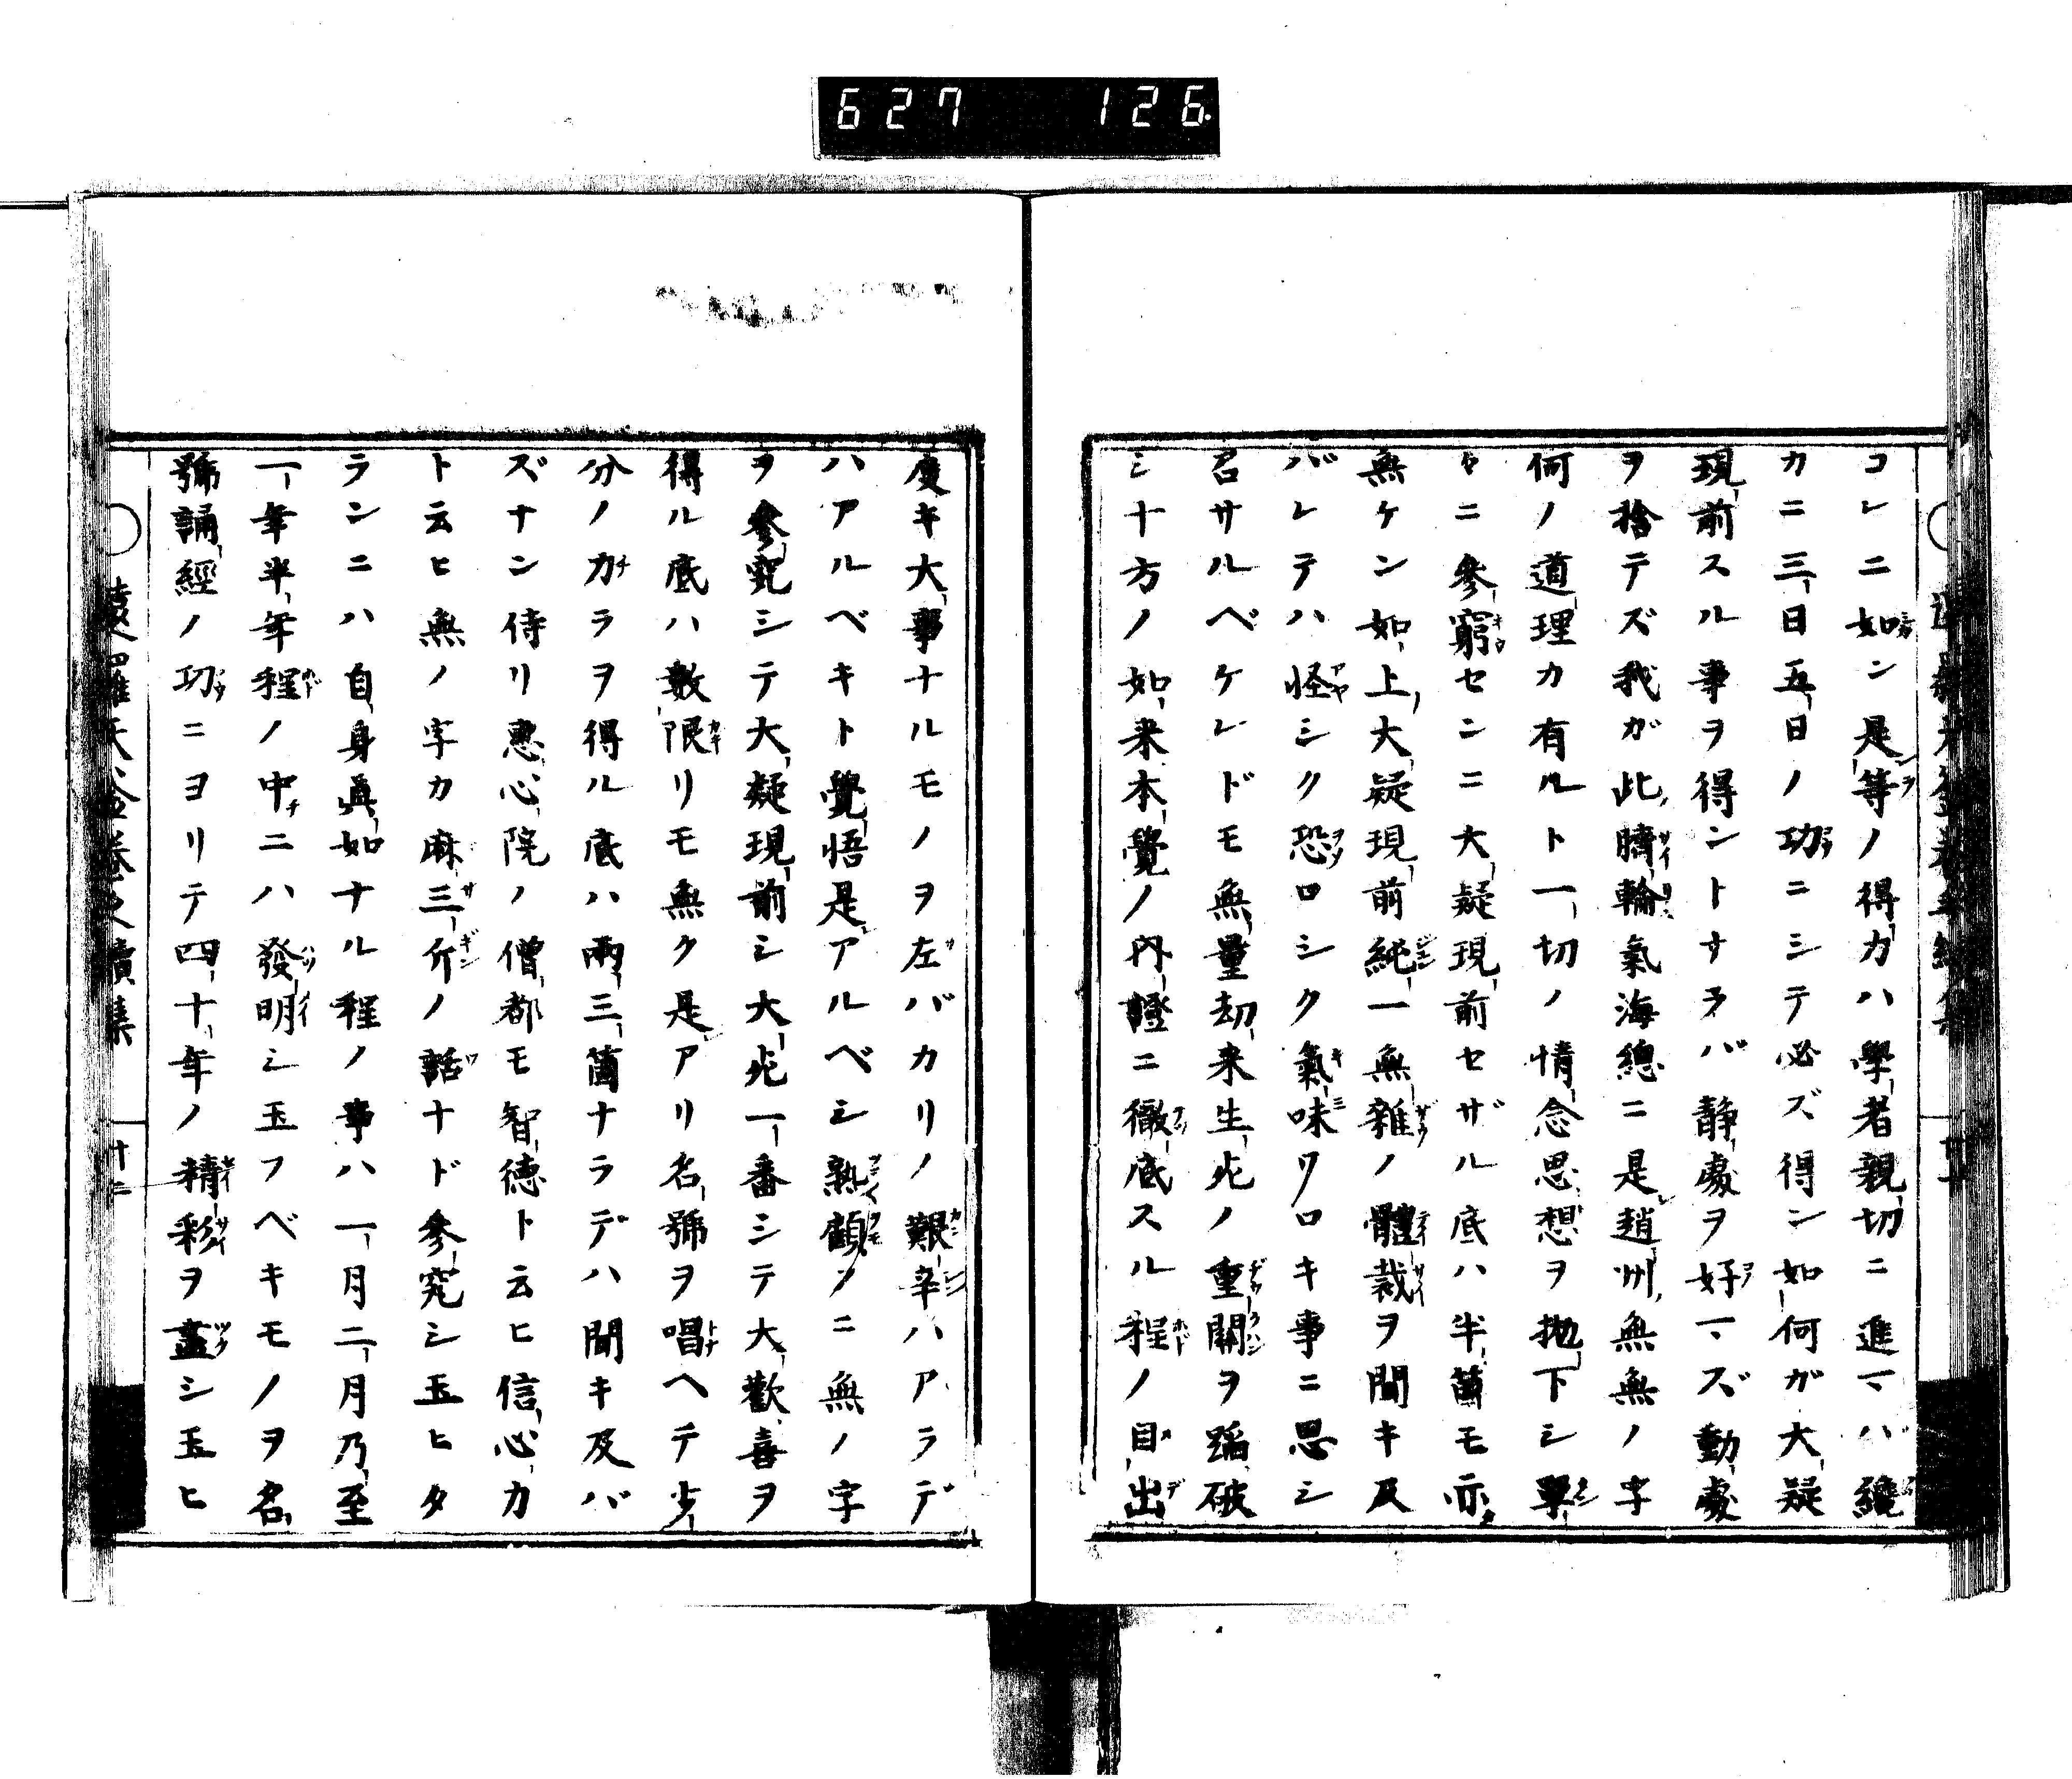 627 126
コレニ如ン是等ノ得力ハ學者親切ニ進マハ纔
カニ三日五日ノ功ニシテ必ズ得ン如何ガ大疑
現前スル事ヲ得ントナラバ静處ヲ好マズ動處
ヲ捨テズ我ガ此臍輪氣海總ニ是趙州無無ノ字
何ノ道理カ有ルト一切ノ情念思想ヲ抛下シ單
々ニ參窮センニ大疑現前セザル底ハ半箇モ亦
無ケン如上大疑現前純一無雜ノ體裁ヲ聞キ及
バレテハ怪シク恐ロシク氣味ワロキ事ニ思シ
召サルベケレドモ無量劫来生死ノ重關ヲ蹈破
シ十方ノ如来本覺ノ内證ニ徹底スル程ノ目出
度キ大事ナルモノヲ左バカリノ艱辛ハアラデ
ハアルベキト覺悟是アルベシ熟顧ノニ無ノ字
ヲ參究シテ大疑現前シ大死一番シテ大歡喜ヲ
得ル底ハ數限リモ無ク是アリ名號ヲ唱ヘテ少
分ノカラヲ得ル底ハ兩三箇ナラデハ聞キ及バ
ズナン侍リ惠心院ノ僧都モ智德ト云ヒ信心カ
ト云ヒ無ノ字カ麻三斤ノ話ナド參究シ玉ヒタ
ランニハ自身眞如ナル程ノ事ハ一月二月乃至
一年半年程ノ中ニハ發明シ玉フベキモノヲ名
號誦經ノ功ニヨリテ四十年ノ精彩ヲ盡シ玉ヒ
遠羅天釜卷之續集 十二